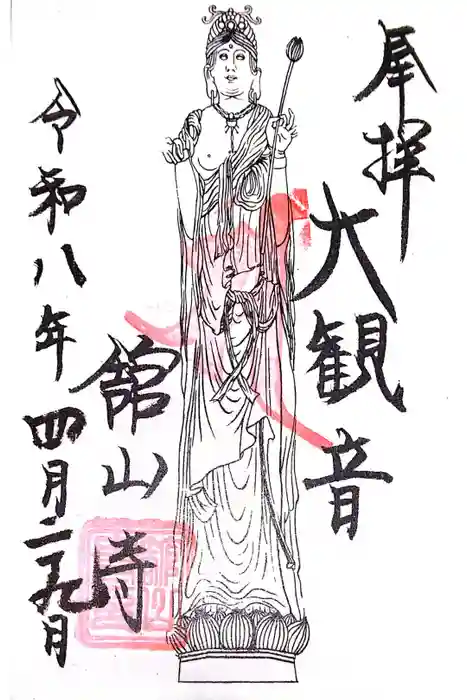 奉拝
大観音
舘山寺
令和八年四月二十九日